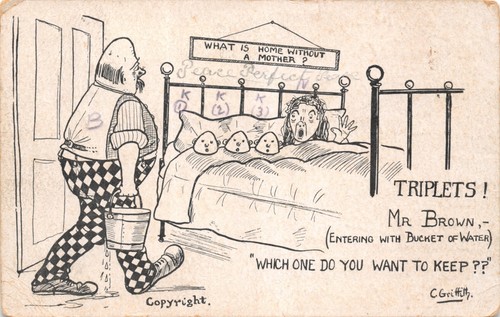 WHAT IS HOME WITHOUT
A MOTHER?
Peace Perfect
K K K N
(1) (2) (3)
B
TRIPLETS!
MR BROWN,-
(ENTERING WITH BUCKET OF WATER)
"WHICH ONE DO YOU WANT TO KEEP??"
C Griffith.
Copyright.